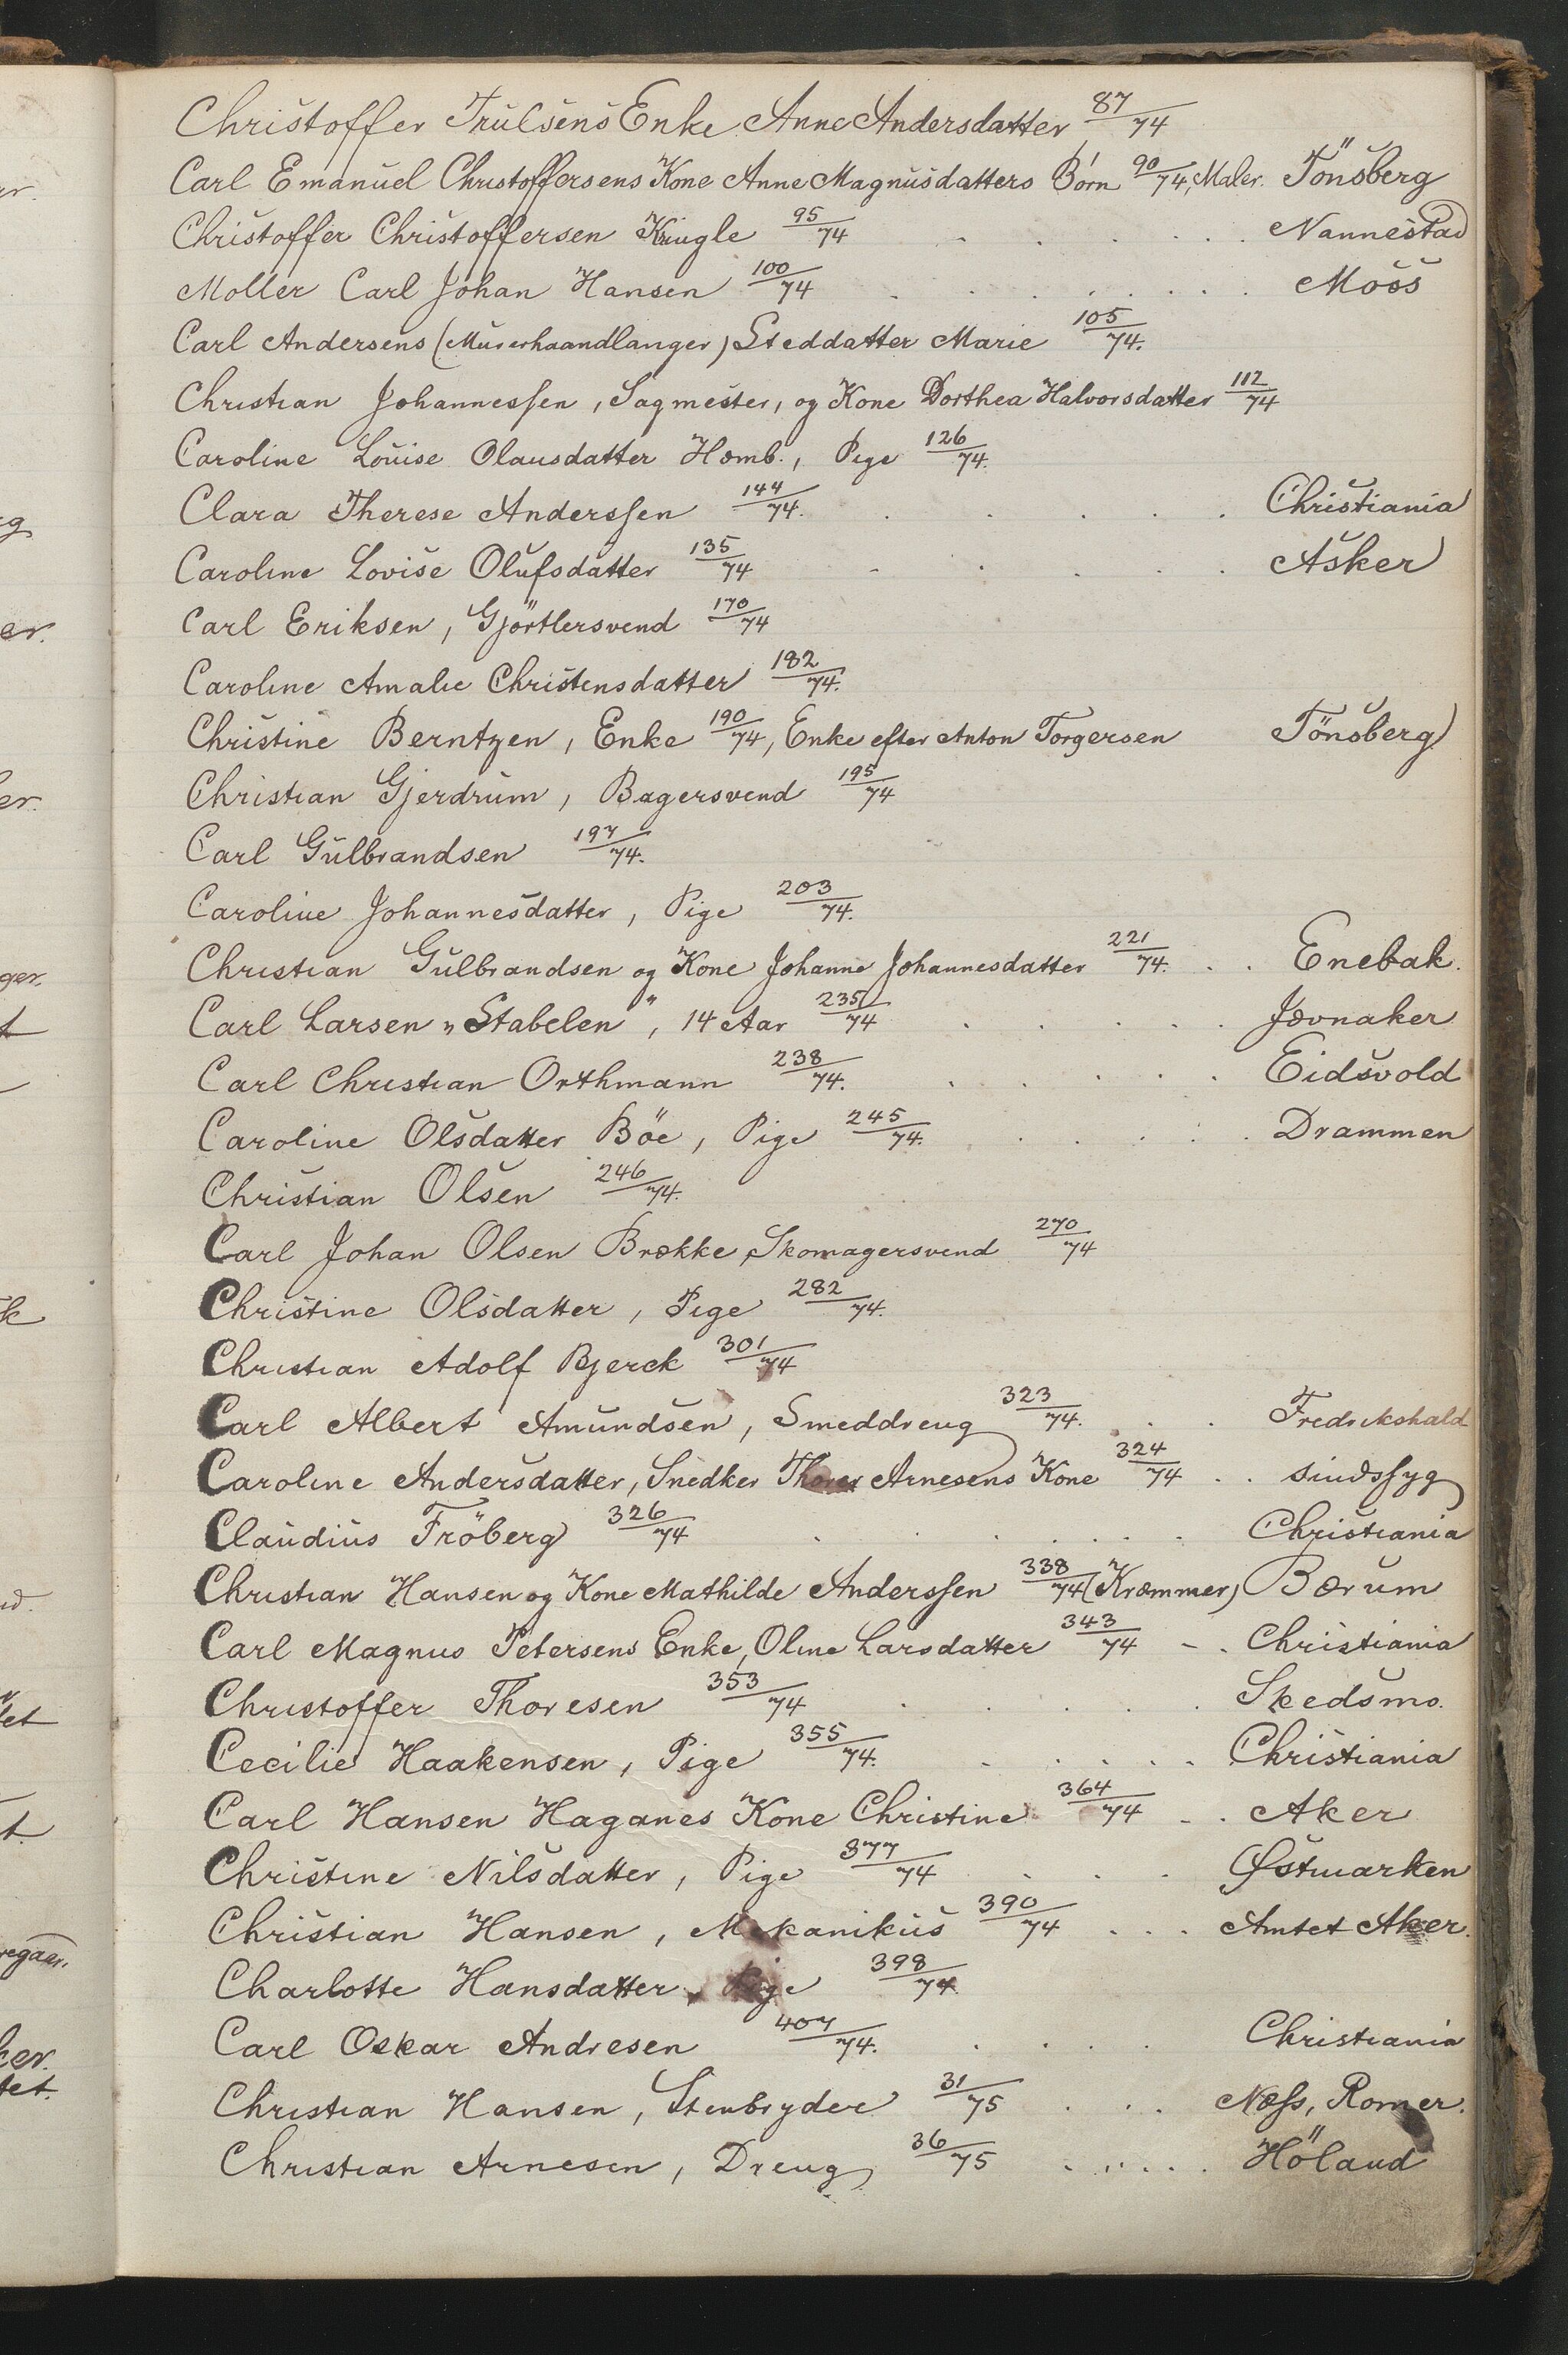 Christoffer Trulsens Enke Anne Andersdatter 87/74
Carl Emanuel Christoffersens Kone Anne Magnusdatters Börn 90/74, Maler. Tönsberg
Christoffer Christoffersen Kringle 95/74 . . . . . . Nannestad
Moller Carl Johan Hansen 100/74 . . . . . . . Moss
Carl Andersens (Murerhaandlanger) Steddatter Marie 105/74.
Christian Johannessen, Sagmester, og Kone Dorthea Halvorsdatter 112/74
Caroline Louise Olausdatter Homb., Pige 126/74.
Clara Therese Anderssen 144/74. . . . . . Christiania
Caroline Lovise Olufsdatter 135/74 . . . . . Asker
Carl Eriksen, Gjörtlersvend 170/74
Caroline Amalie Christensdatter 182/74.
Christine Berntzen, Enke 190/74, Enke efter Anton Torgersen Tönsberg
Christian Gjerdrum, Bagersvend 195/74
Carl Gulbrandsen 197/74.
Caroline Johannesdatter, Pige 203/74.
Christian Gulbrandsen og Kone Johanne Johannesdatter 221/74. . . Enebak.
Carl Larsen „Stabelen“, 14 Aar 235/74 . . . . . Jævnaker
Carl Christian Orthmann 238/74. . . . . . Eidsvold
Caroline Olsdatter Böe, Pige 245/74. . . . . . Drammen
Christian Olsen 246/74.
Carl Johan Olsen Brække, Skomagersvend 270/74
Christine Olsdatter, Pige 282/74.
Christian Adolf Bjerck 301/74
Carl Albert Amundsen, Smeddreng 323/74. . . Fredrikshald
Caroline Andersdatter, Snedker Thores Arnesens Kone 324/74 . . sindssyg
Claudius Fröberg 326/74 . . . . . Christiania
Christian Hansen og Kone Mathilde Anderssen 338/74 (Kræmmer) Bærum
Carl Magnus Petersens Enke, Oline Larsdatter 343/74 - . Christiania
Christoffer Thoresen 353/74 . . . . . Skedsmo.
Cecilie Haakensen, Pige 355/74. . . . . . Christiania
Carl Hansen Haganes Kone Christine 364/74 - . Aker
Christine Nilsdatter, Pige 377/74 . . . Østmarken
Christian Hansen, Mekanikus 390/74 . . . Amtet Aker.
Charlotte Hansdatter, Pige 398/74
Carl Oskar Andresen 407/74. . . . . Christiania
Christian Hansen, Stenbryder 31/75 . . . Næss, Romer.
Christian Arnesen, Dreng 36/75 . . . . . Höland